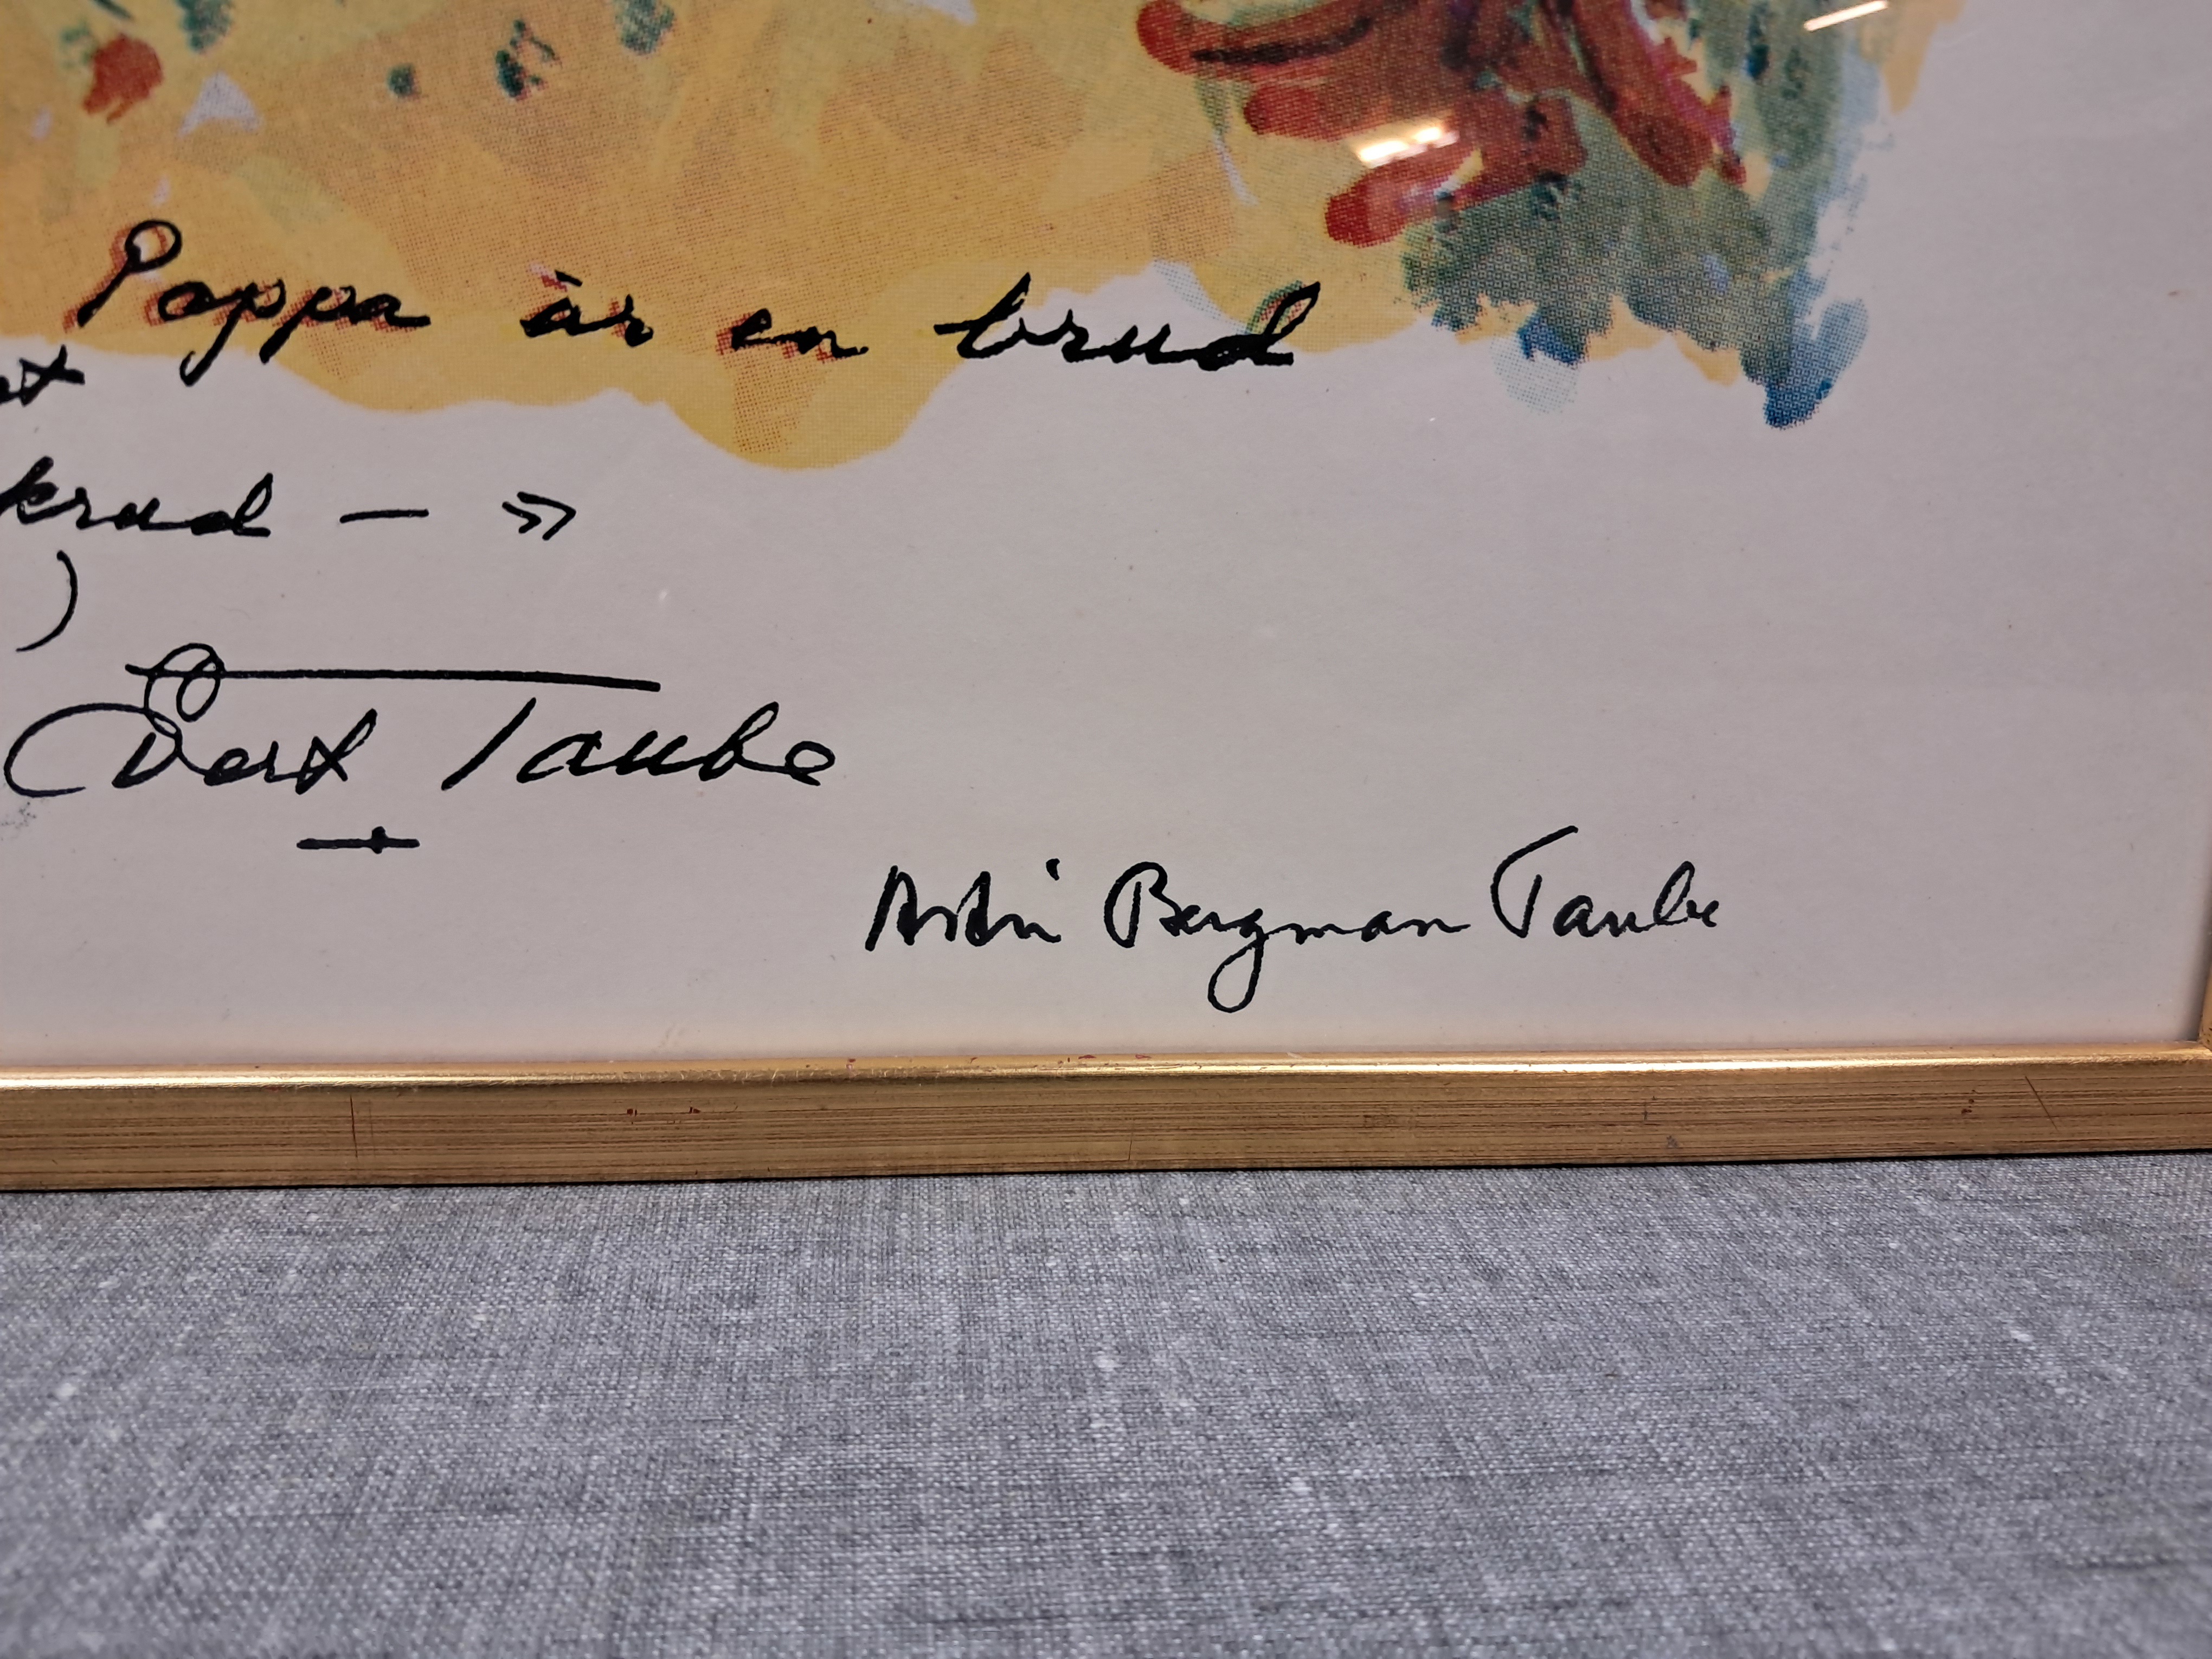 Poppa är en brud
krud — »
)
Evert Taube
Astri Bergman Taube